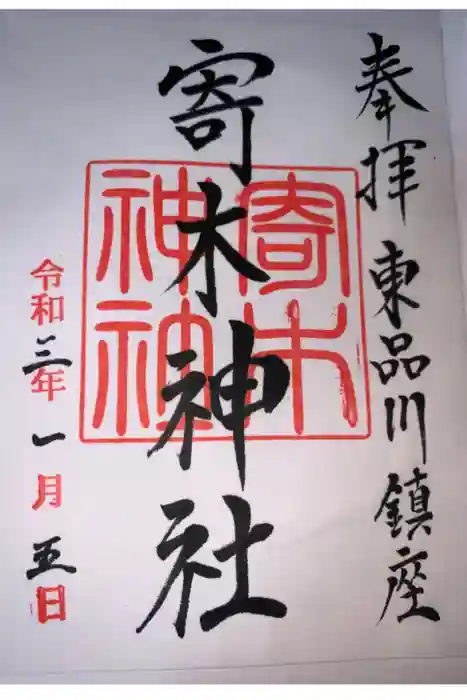 奉拝 東品川鎮座
寄木神社
寄木神社
令和三年一月五日